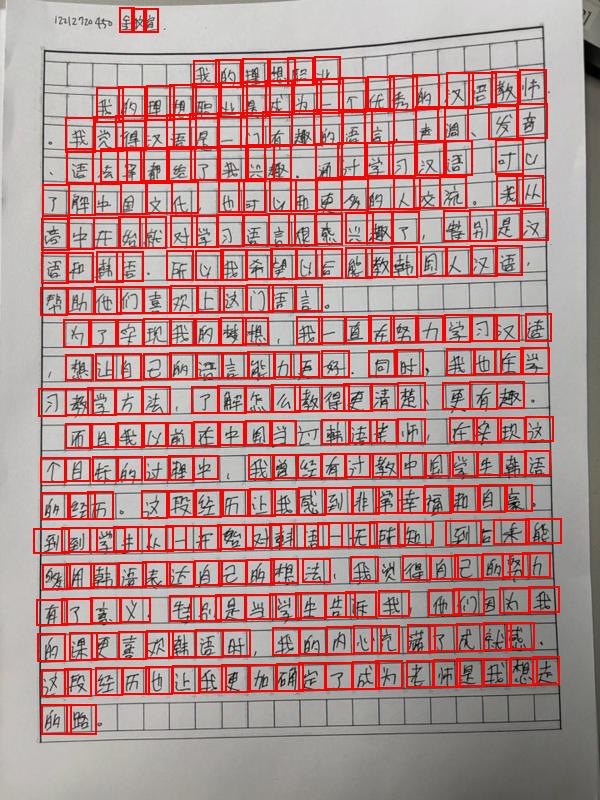 12212720450 金校宣
我的理想职业
我的理想职业是成为一个优秀的汉语教师
。我觉得汉语是一门有趣的语言，声调、发音
、语法等都给了我兴趣。通过学习汉语，可以
了解中国文化，也可以和更多的人交流。我从
高中开始就对学习语言很感兴趣了，特别是汉
语和韩语。所以我希望以后能教韩国人汉语，
帮助他们喜欢上这门语言。
为了实现我的梦想，我一直在努力学习汉语
，想让自己的语言能力更好。同时，我也在学
习教学方法，了解怎么教得更清楚、更有趣。
而且我以前在中国当过韩语老师，在实现这
个目标的过程中，我曾经有过教中国学生韩语
的经历。这段经历让我感到非常幸福和自豪。
看到学生从一开始对韩语一无所知，到后来能
够用韩语表达自己的想法，我觉得自己的努力
有了意义。特别是当学生告诉我，他们因为我
的课更喜欢韩语时，我的内心充满了成就感。
这段经历也让我更加确定了成为老师是我想走
的路。